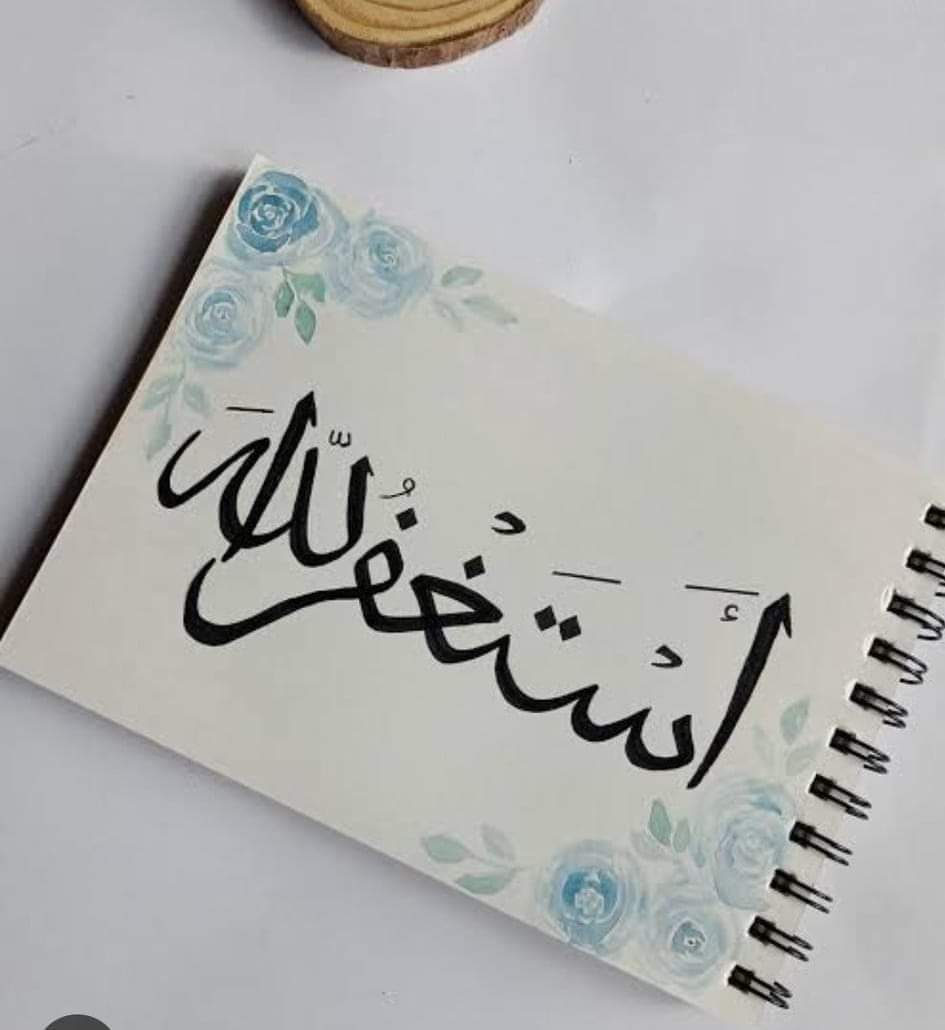 أَسْتَغْفُرللّهَ